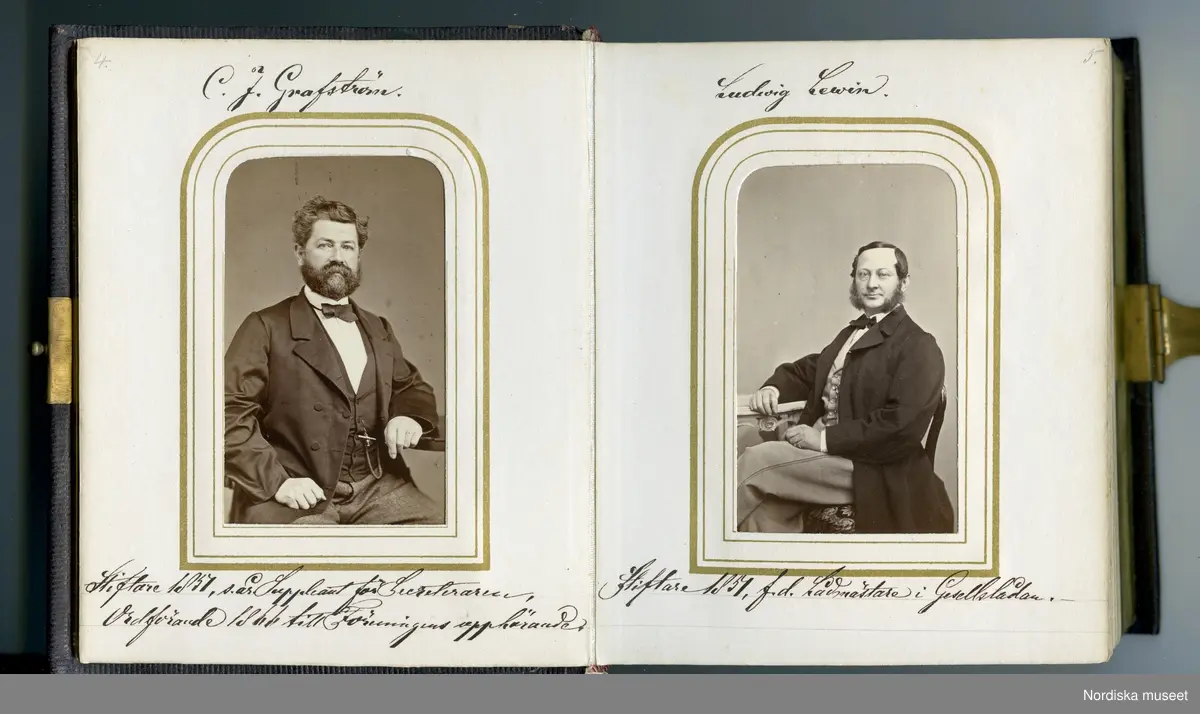 4.
C. J. Grafström.
Stiftare 1851, s. år Suppleant för Secreteraren,
Ordförande 1866 till Föreningens upphörande.
5.
Ludwig Lewin.
Stiftare 1851, f.d. Ladmästare i Gesellsladan.
Nordiska museet